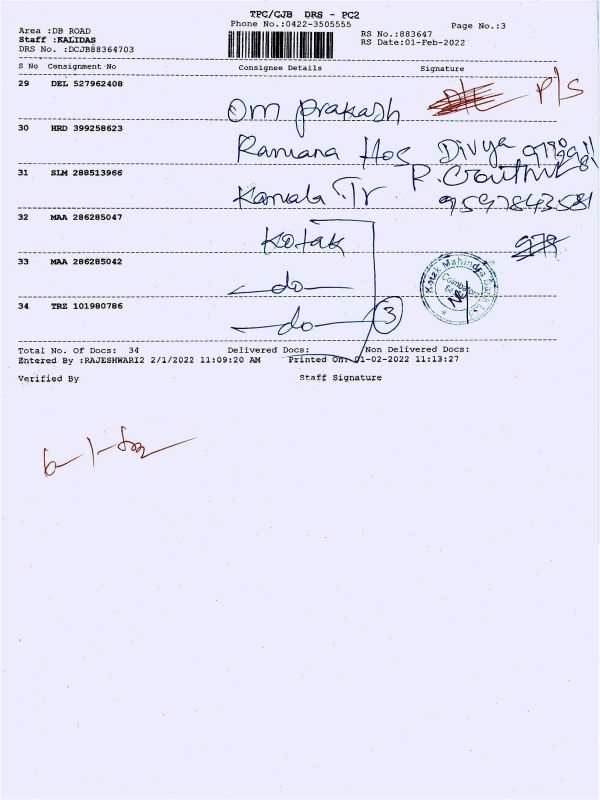 TPC/CJB DRS - PC2
Phone No.:0422-3505555
Page No.:3
Area :DB ROAD
Staff :KALIDAS
DRS No. :DCJB88364703
RS No.:883647
RS Date:01-Feb-2022
S No Consignment No Consignee Details Signature
29 DEL 527962408
Om Prakash P/S
30 HRD 399258623
Ramana Hos Divya
31 SLM 288513966
Kamala Tr R. 9597843581
32 MAA 286285047
Kotak 979
33 MAA 286285042
do
Kotak Mahindra Bank
Coimbatore
34 TRZ 101980786
do 3
Total No. Of Docs: 34 Delivered Docs: Non Delivered Docs:
Entered By :RAJESHWARI2 2/1/2022 11:09:20 AM Printed On: 01-02-2022 11:13:27
Verified By Staff Signature